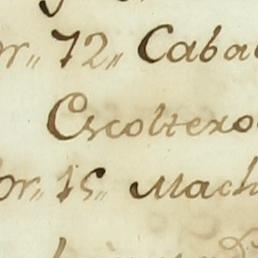 or,, 72,, Caba
Escoltero
or,, 15,, Mach